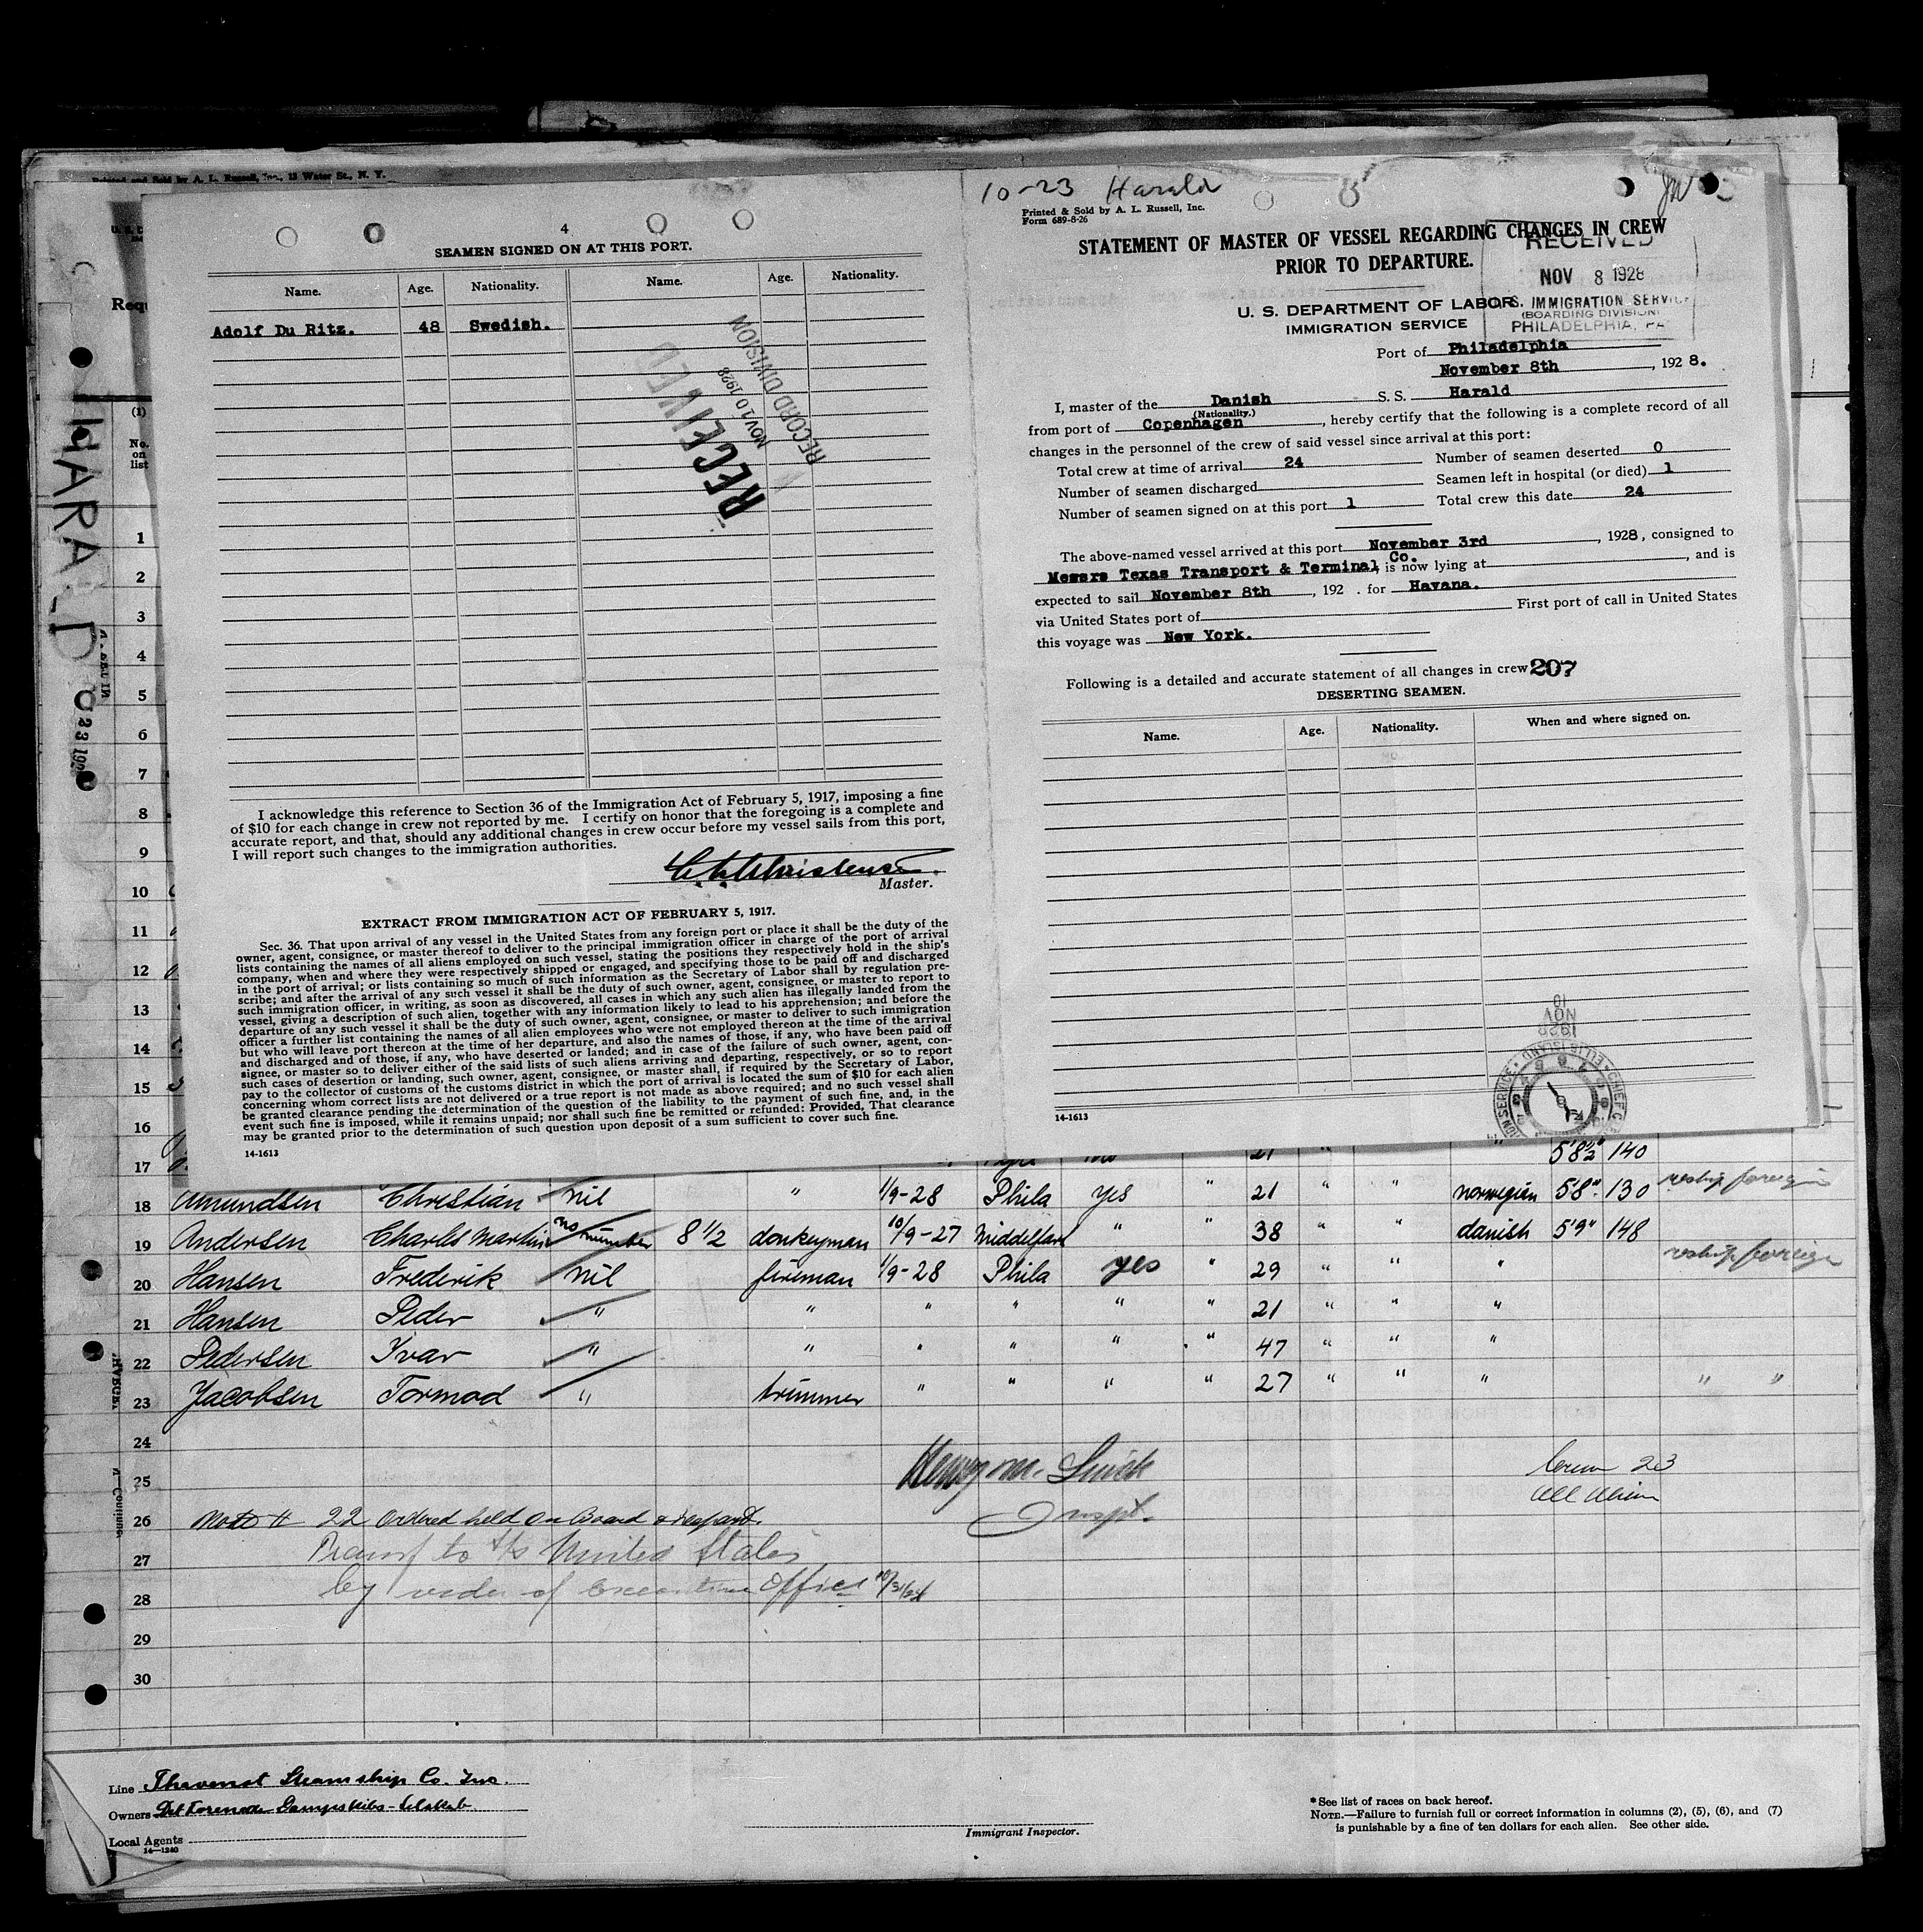 Printed and Sold by A. L. Russell, Inc., 13 Water St., N. Y.
HARALD
(1)
No.
on
list
4
SEAMEN SIGNED ON AT THIS PORT.
Name. Age. Nationality. Name. Age. Nationality.
Adolf Du Ritz. 48 Swedish.
RECEIVED
NOV 10 1928
RECORD DIVISION
I acknowledge this reference to Section 36 of the Immigration Act of February 5, 1917, imposing a fine
of $10 for each change in crew not reported by me. I certify on honor that the foregoing is a complete and
accurate report, and that, should any additional changes in crew occur before my vessel sails from this port,
I will report such changes to the immigration authorities.
Master.
EXTRACT FROM IMMIGRATION ACT OF FEBRUARY 5, 1917.
Sec. 36. That upon arrival of any vessel in the United States from any foreign port or place it shall be the duty of the
owner, agent, consignee, or master thereof to deliver to the principal immigration officer in charge of the port of arrival
lists containing the names of all aliens employed on such vessel, stating the positions they respectively hold in the ship's
company, when and where they were respectively shipped or engaged, and specifying those to be paid off and discharged
in the port of arrival; or lists containing so much of such information as the Secretary of Labor shall by regulation pre-
scribe; and after the arrival of any such vessel it shall be the duty of such owner, agent, consignee, or master to report to
such immigration officer, in writing, as soon as discovered, all cases in which any such alien has illegally landed from the
vessel, giving a description of such alien, together with any information likely to lead to his apprehension; and before the
departure of any such vessel it shall be the duty of such owner, agent, consignee, or master to deliver to such immigration
officer a further list containing the names of all alien employees who were not employed thereon at the time of the arrival
but who will leave port thereon at the time of her departure, and also the names of those, if any, who have been paid off
and discharged and of those, if any, who have deserted or landed; and in case of the failure of such owner, agent, con-
signee, or master so to deliver either of the said lists of such aliens arriving and departing, respectively, or so to report
such cases of desertion or landing, such owner, agent, consignee, or master shall, if required by the Secretary of Labor,
pay to the collector of customs of the customs district in which the port of arrival is located the sum of $10 for each alien
concerning whom correct lists are not delivered or a true report is not made as above required; and no such vessel shall
be granted clearance pending the determination of the question of the liability to the payment of such fine, and, in the
event such fine is imposed, while it remains unpaid; nor shall such fine be remitted or refunded: Provided, That clearance
may be granted prior to the determination of such question upon deposit of a sum sufficient to cover such fine.
14-1613
10-23 Harald
Printed & Sold by A. L. Russell, Inc.
Form 689-8-26
STATEMENT OF MASTER OF VESSEL REGARDING CHANGES IN CREW
PRIOR TO DEPARTURE.
RECEIVED
NOV 8 1928
U. S. IMMIGRATION SERVICE
(BOARDING DIVISION)
PHILADELPHIA, PA
U. S. DEPARTMENT OF LABOR
IMMIGRATION SERVICE
Port of Philadelphia
November 8th, 1928.
I, master of the Danish S. S. Harald
(Nationality.)
from port of Copenhagen, hereby certify that the following is a complete record of all
changes in the personnel of the crew of said vessel since arrival at this port:
Total crew at time of arrival 24 Number of seamen deserted 0
Number of seamen discharged Seamen left in hospital (or died) 1
Number of seamen signed on at this port 1 Total crew this date 24
The above-named vessel arrived at this port November 3rd, 1928, consigned to
Messrs Texas Transport & Terminal Co. is now lying at , and is
expected to sail November 8th, 192 . for Havana.
via United States port of First port of call in United States
this voyage was New York.
Following is a detailed and accurate statement of all changes in crew 207
DESERTING SEAMEN.
Name. Age. Nationality. When and where signed on.
14-1613
1
2
3
4
5
6
7
8
9
10
11
12
13
14
15
16
17 21 5'8½" 140
18 Amundsen Christian nil " 1/9-28 Phila yes " 21 " " norwegian 5'8" 130 reship foreign
19 Andersen Charles Martin no number 8 1/2 donkeyman 10/9-27 Middelfart " " 38 " " danish 5'9" 148
20 Hansen Frederik nil fireman 1/9-28 Phila yes " 29 " " " reship foreign
21 Hansen Peder " " " " " " 21 " " "
22 Pedersen Ivar " " " " " " 47 " " "
23 Jacobsen Tormod " trimmer " " " " 27 " " " " "
24
25
26 Note # 22 Ordered held on Board &
27 to United States
28 by order of Office 10/31/28
29
30
Inspt.
Crew 23
All Aliens
Line Steamship Co. Inc.
Owners Det Forenede Dampskibs-Selskab
Local Agents
14-1240
Immigrant Inspector.
*See list of races on back hereof.
NOTE.—Failure to furnish full or correct information in columns (2), (5), (6), and (7)
is punishable by a fine of ten dollars for each alien. See other side.